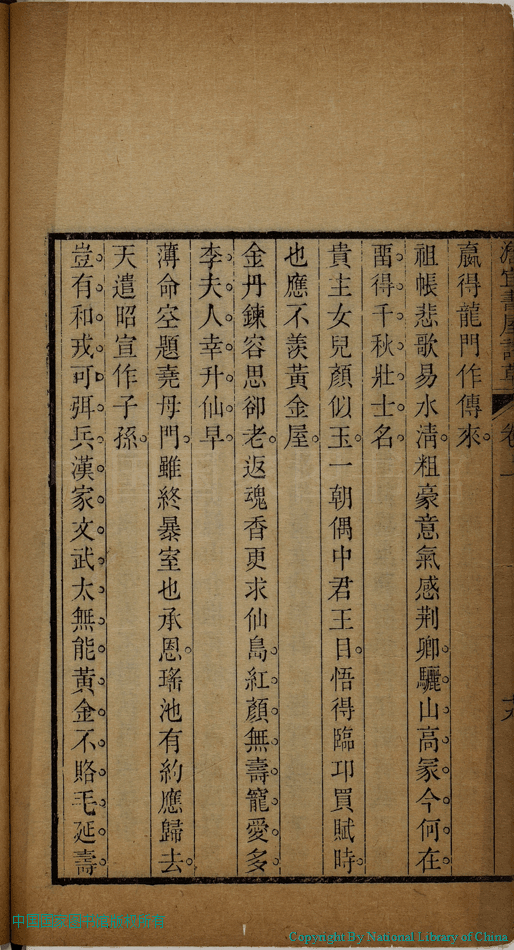 贏得龍門作傳來
祖帳悲歌易水淸粗豪意氣感荆卿驪山高冢今何在
畱得千秋壯士名
貴主女兒顏似玉一朝偶中君王目悟得臨卭買賦時
也應不羨黃金屋
金丹鍊容思卻老返魂香更求仙島紅顏無壽寵愛多
李夫人幸升仙早
薄命空題堯母門雖終暴室也承恩瑤池有約應歸去
天遣昭宣作子孫
豈有和戎可弭兵漢家文武太無能黃金不賂毛延壽
Copyright By National Library of China